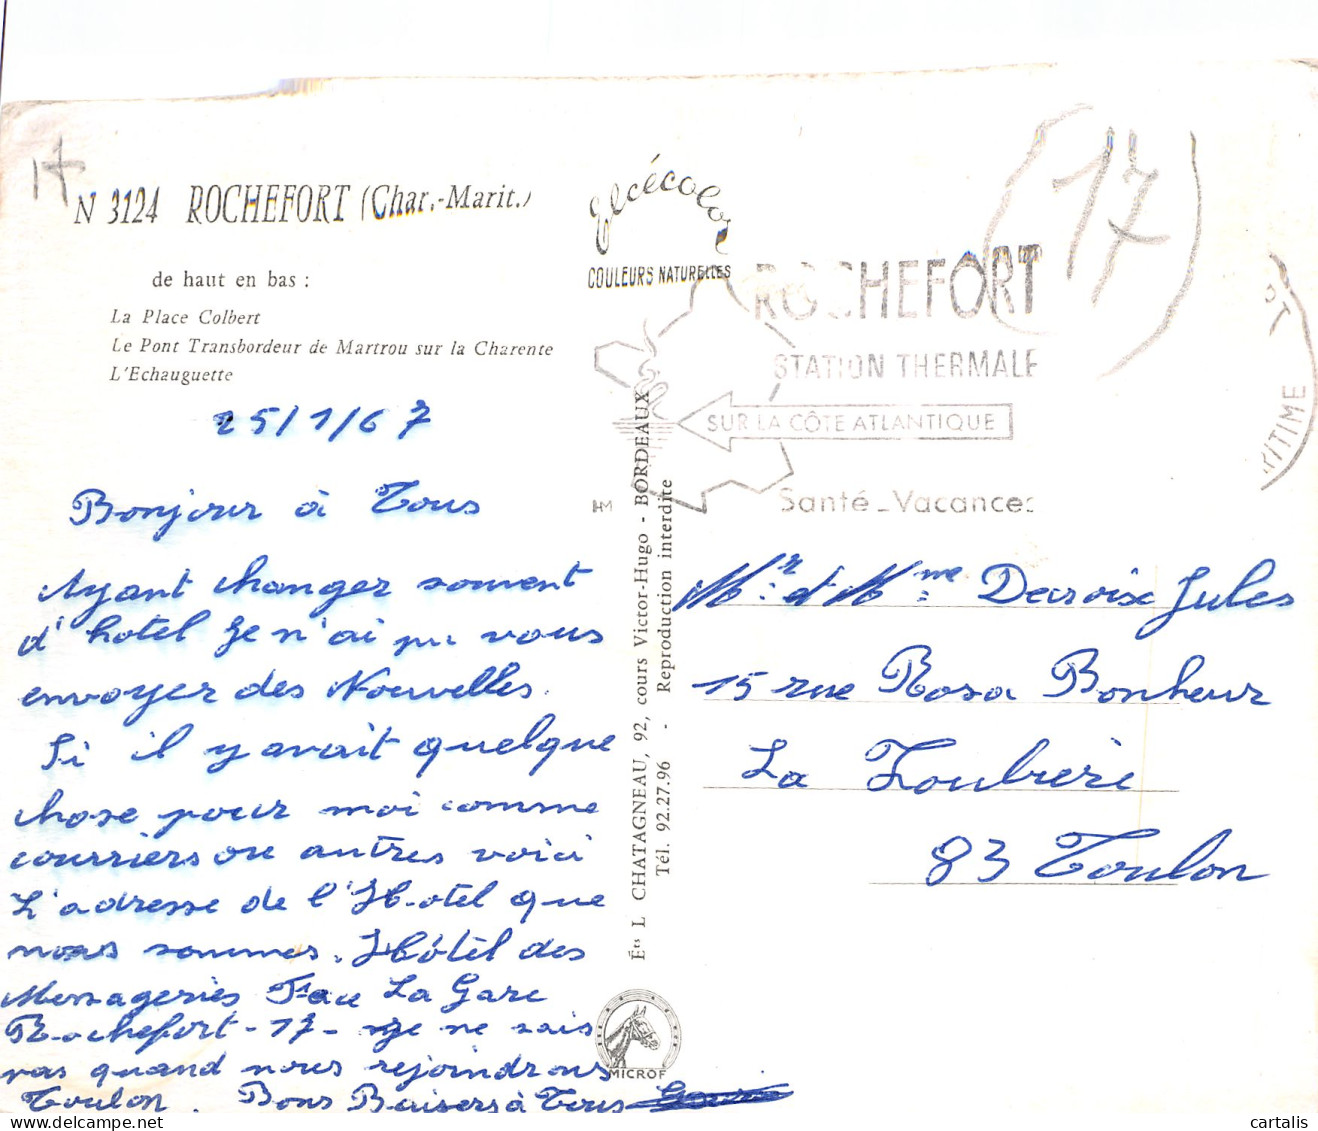 17
N 3124 ROCHEFORT (Char.-Marit.)
de haut en bas :
La Place Colbert
Le Pont Transbordeur de Martrou sur la Charente
L'Echauguette
25/1/67
Bonjour à Tous
Ayant changer souvent
d'hotel je n'ai pu vous
envoyer des Nouvelles.
Si il y avait quelque
chose pour moi comme
courriers ou autres voici
L'adresse de l'Hotel que
nous sommes. Hôtel des
Messageries Face La Gare
Rochefort-17- je ne sais
pas quand nous rejoindrons
Toulon. Bons Baisers à Tous
COULEURS NATURELLES
Éts L CHATAGNEAU, 92, cours Victor-Hugo - BORDEAUX
Tél. 92.27.96 - Reproduction interdite
MICROF
(17)
ROCHEFORT
STATION THERMALE
SUR LA CÔTE ATLANTIQUE
Santé - Vacances
Mr et Mme Decroix Jules
15 rue Rosa Bonheur
La Loubière
83 Toulon
cartalis